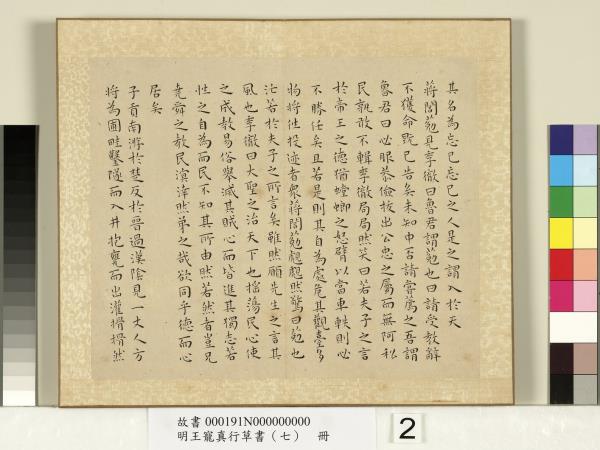 其名為忘己忘己之人是之謂入於天
蔣閭葂見季徹曰魯君謂葂也曰請受教辭
不獲命既已告矣未知中否請嘗薦之吾謂
魯君曰必服恭儉拔出公忠之屬而無阿私
民孰敢不輯季徹局局然笑曰若夫子之言
於帝王之德猶螳蜋之怒臂以當車軼則必
不勝任矣且若是則其自為處危其觀臺多
物將往投迹者眾蔣閭葂覤覤然驚曰葂也
汒若於夫子之所言矣雖然願先生之言其
風也季徹曰大聖之治天下也搖蕩民心使
之成教易俗舉滅其賊心而皆進其獨志若
性之自為而民不知其所由然若然者豈兄
堯舜之教民溟涬然弟之哉欲同乎德而心
居矣
子貢南游於楚反於晉過漢陰見一丈人方
將為圃畦鑿隧而入井抱甕而出灌搰搰然
故書 000191N000000000
明王寵真行草書（七） 冊
2